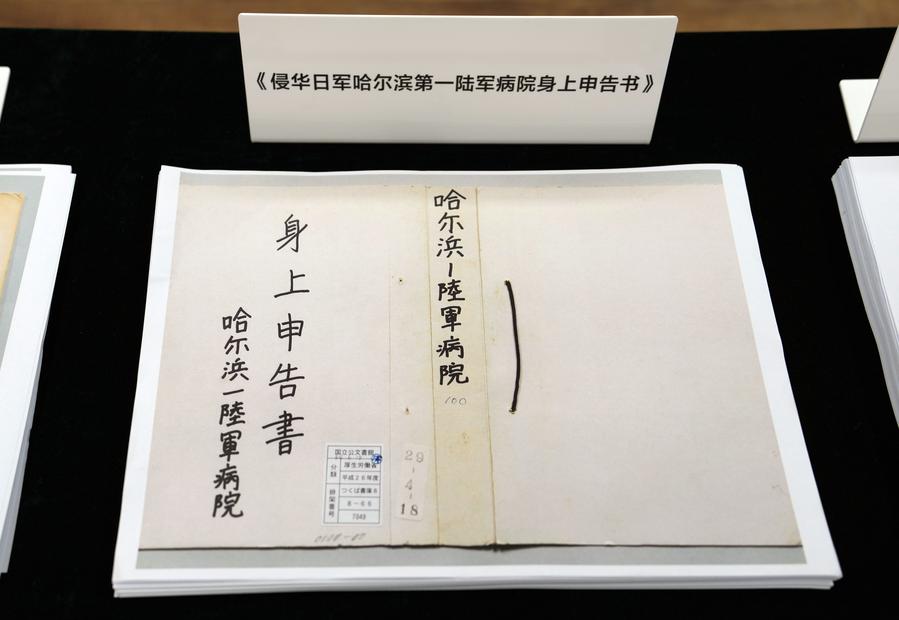 《侵华日军哈尔滨第一陆军病院身上申告书》
哈尔浜一陸軍病院
100
身上申告書
哈尔浜一陸軍病院
国立公文書館
分類
厚生労働省
平成26年度
つくば書庫6
6-66
排架番号
7049
29-4-18